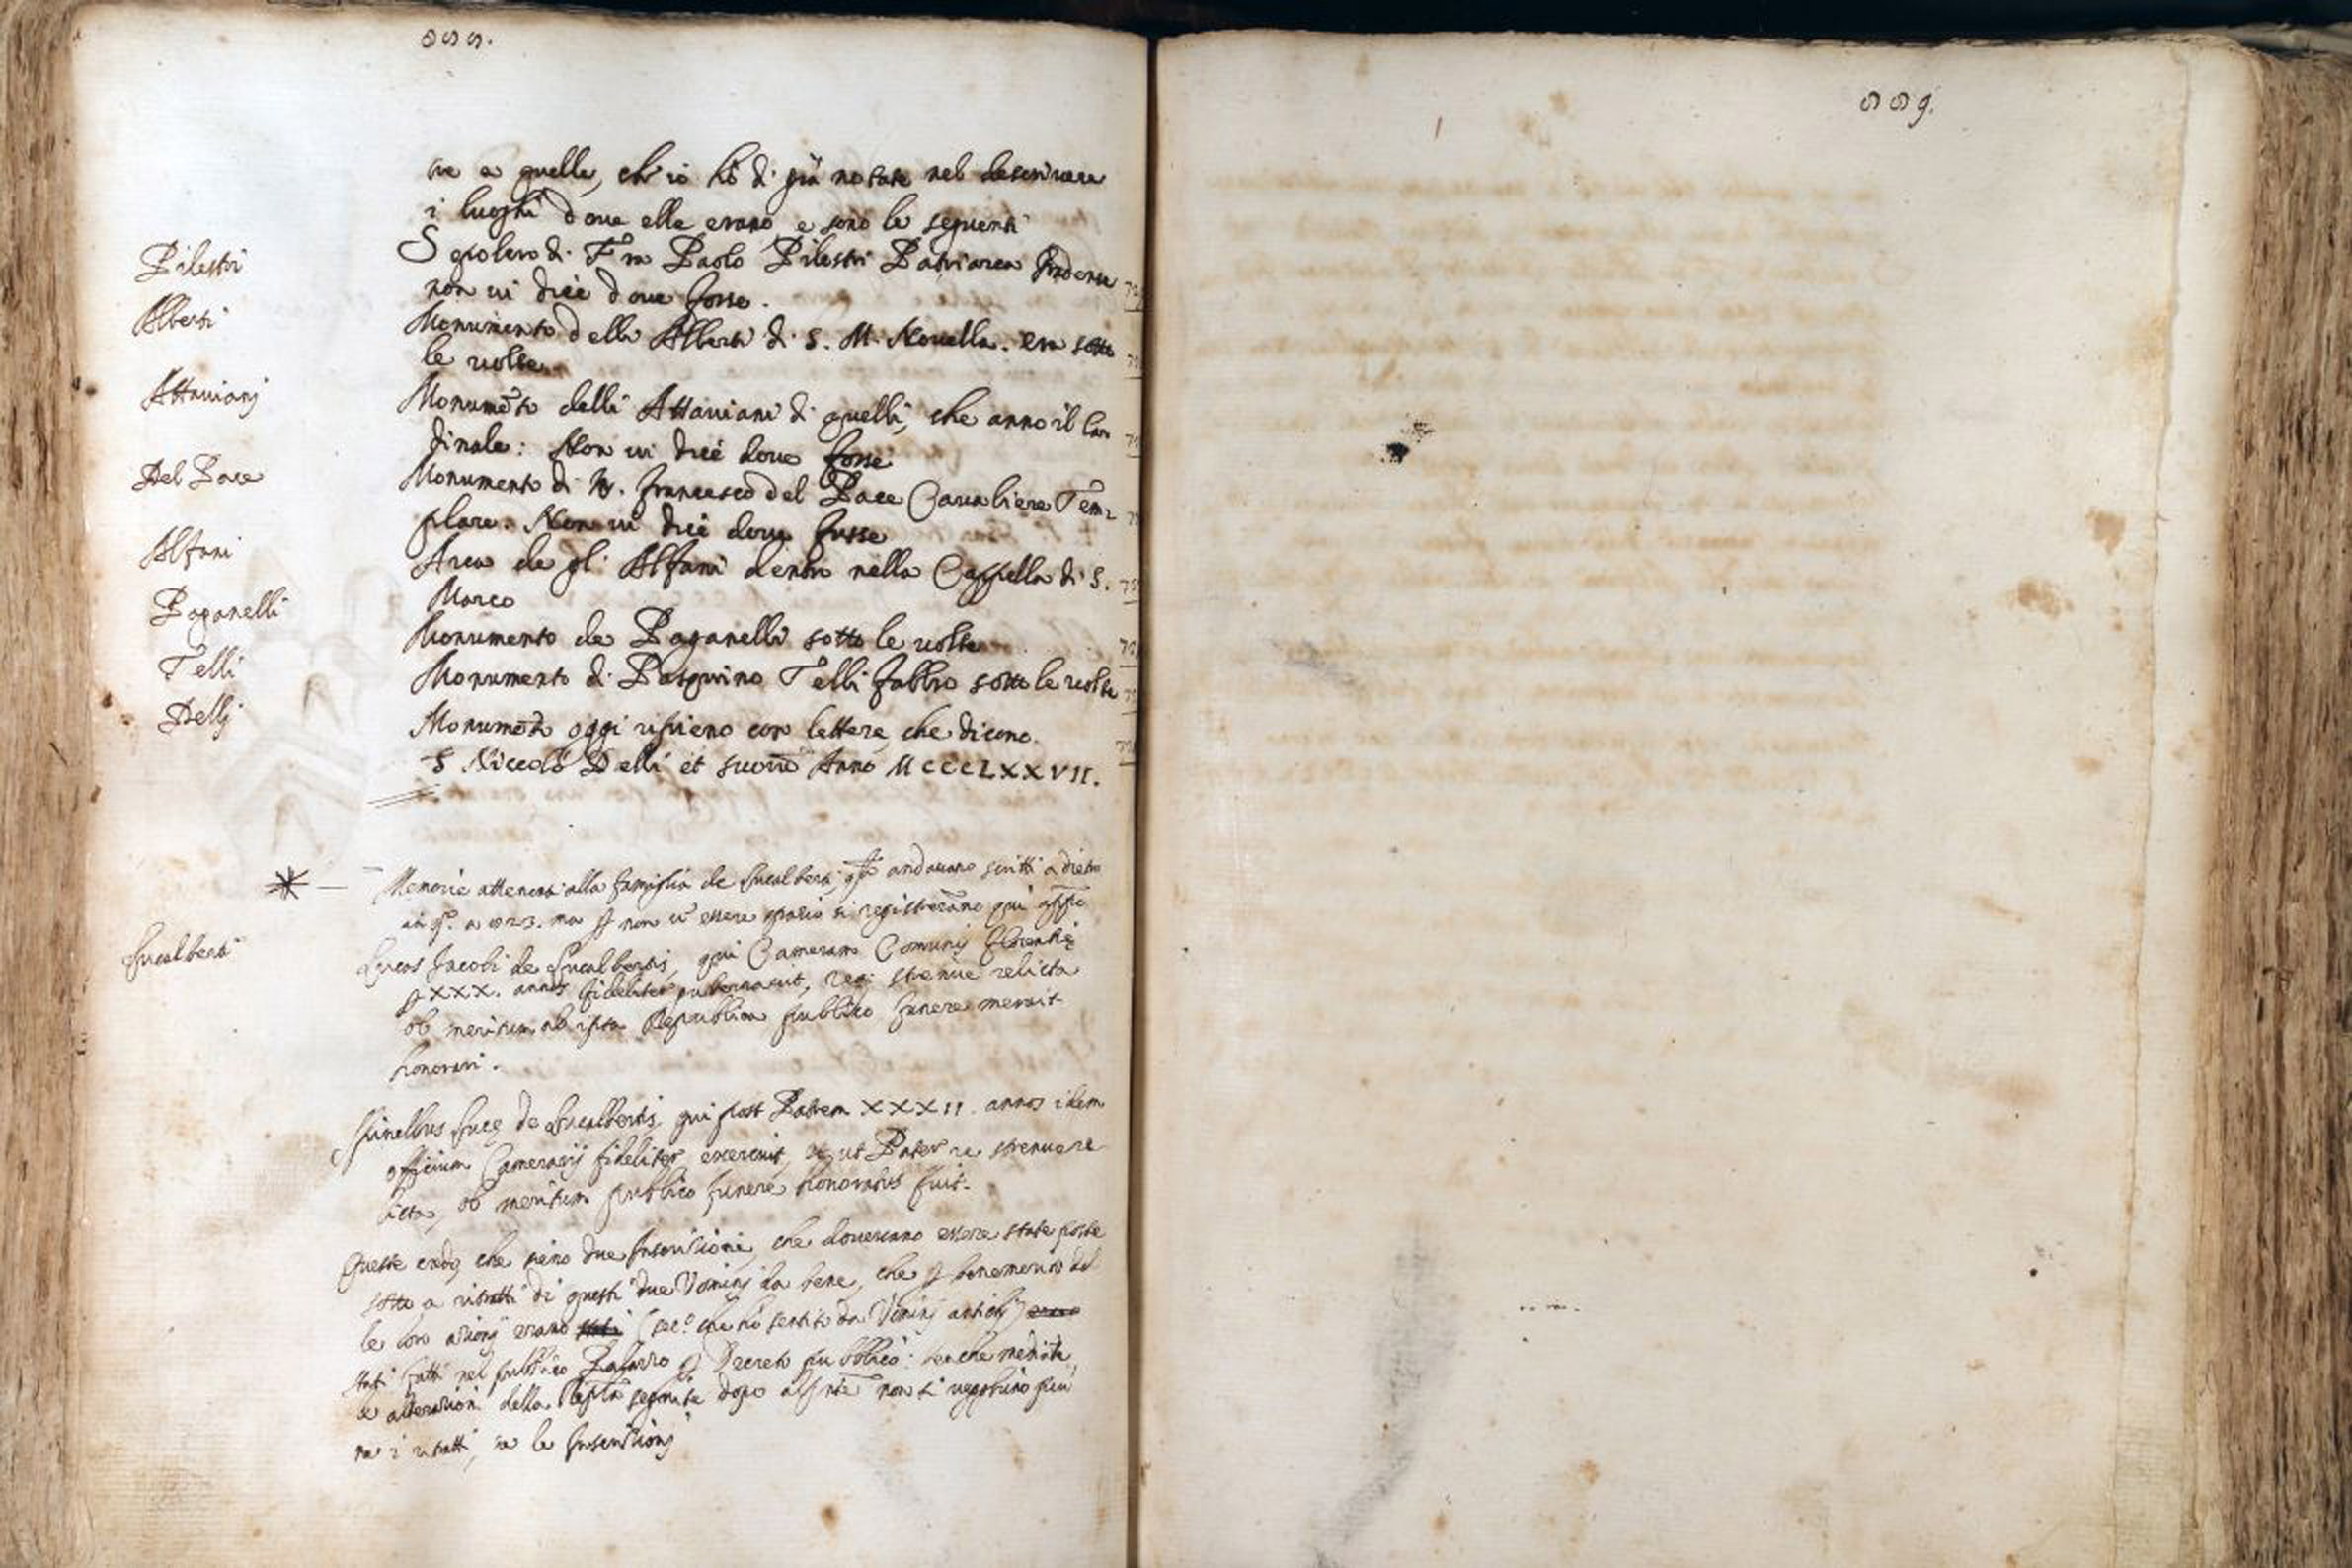 re a quelle, ch'io hò di già notate nel descrivere
i luoghi doue elle erano e sono le seguenti
Pilestri
Sepolcro di F. Paolo Pilestri Patriarca
non ui dice doue fosse.
Alberti
Monumento delli Alberti di S. M. Nouella. era sotto
le uolte
Attauianj
Monumẽto delli Attauiani di quelli, che anno il Car
dinale: Non ui dicè doue fosse
Del Pace
Monumento di M. Francesco del Pace Caualiere Tem
plare. Non ui dicè doue fusse
Alfani
Arca de gl' Alfani dentro nella Cappella di S.
Marco
Paganelli
Monumento de Paganelli sotto le uolte
Telli
Monumento di Pasquino Telli fabbro sotto le uolte
Dellj
Monumẽto oggi ripieno con lettere che dicono.
S Niccolò Delli et suorũ Anno MCCCLXXVII.
Memorie attenenti alla famiglia de Lucalberti, andauano scritti a dietro
ma non ui essere spazio si registrerãno qui
Lucalberti
Lucas Jacobi de Lucalbertis, qui Cameram Comunis Florentię
XXX. annos fideliter gubernauit, strenue relicta
ob meritum ab ipsa Republica publico funere meruit
honorari.
Spinellus Lucę de Lucalbertis, qui post Patrem XXXII. annos idem
officium Camerarij fideliter exercuit, et ut Pater re strenue re
licta, ob meritum publico funere honoratus fuit.
Queste credo, che sieno due Inscrizioni, che doueuano essere state poste
sotto a ritratti di questi due Vominj da bene, che benemerito del
le loro azionj erano (sec.o che hò sentito da Vominj antichj)
stati fatti nel publico Palazzo Decreto publico: benche
alterazioni della seguite dopo non si uegghino più
ne i ritratti, ne le Inscrizionj